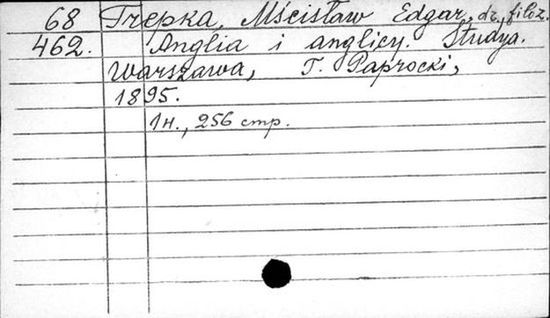 68 Trepka, Mścisław Edgar, dr., filoz.
462. Anglia i anglicy. Studya.
Warszawa, T. Paprocki,
1895.
1 н., 256 стр.